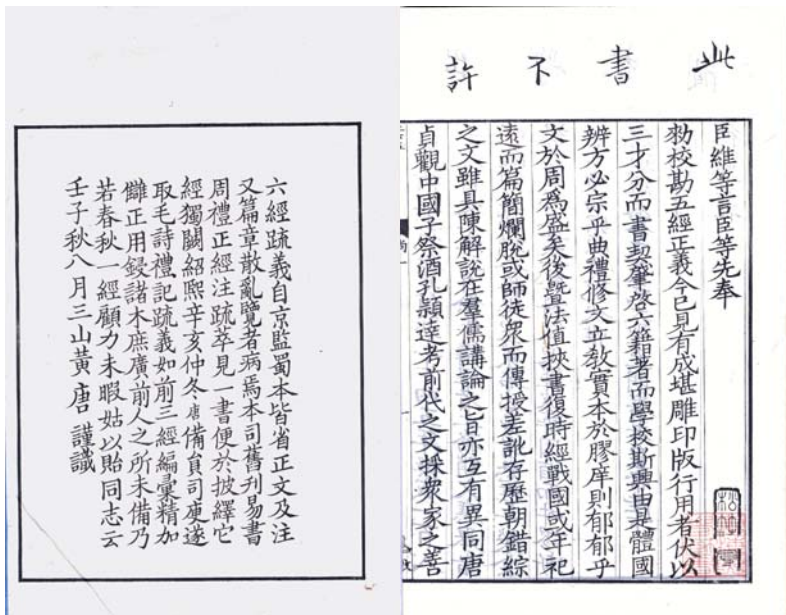 此書不許
臣維等言臣等先奉
勑校勘五經正義今已見有成堪雕印版行用者伏以
三才分而書契肇啓六籍著而學校斯興由是體國
辨方必宗乎典禮修文立敎實本於膠庠則郁郁乎
文於周爲盛矣後曁法值挾書復時經戰國或年祀
遠而篇簡爛脫或師徒衆而傳授差訛存歷朝錯綜
之文雖具陳解說在羣儒講論之旨亦互有異同唐
貞觀中國子祭酒孔穎達考前代之文採衆家之善
六經疏義自京監蜀本皆省正文及注
又篇章散亂覽者病焉本司舊刊易書
周禮正經注疏萃見一書便於披繹它
經獨闕紹熙辛亥仲冬唐備員司庾遂
取毛詩禮記疏義如前三經編彙精加
讎正用鋟諸木庶廣前人之所未備乃
若春秋一經顧力未暇姑以貽同志云
壬子秋八月三山黃唐謹識